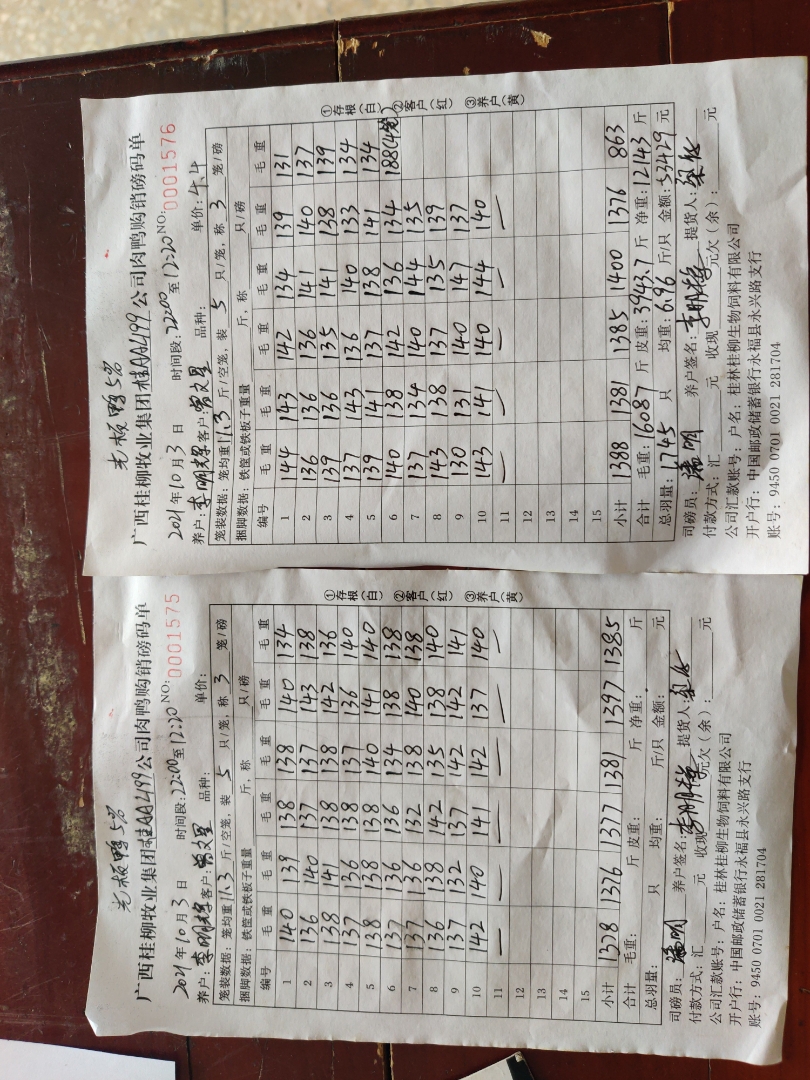 光板鸭5%
广西桂柳牧业集团桂AA2499公司肉鸭购销磅码单
2021年10月3日 时间段:22:00至12:20 NO: 0001575
养户:李明辉 客户:曾文星 品种: 单价:
笼装数据:笼均重11.3斤/空笼,装5只/笼,称3笼/磅
捆脚数据:铁筐或铁板子重量 斤,称 只/磅
编号 毛重 毛重 毛重 毛重 毛重 毛重
1 140 139 138 138 140 134
2 136 140 137 137 143 138
3 138 141 138 138 142 136
4 137 136 138 137 136 140
5 138 138 138 140 141 140
6 137 136 136 134 138 138
7 137 136 132 138 140 138
8 136 138 142 135 138 140
9 137 132 137 142 142 141
10 142 140 141 142 137 140
11 — — — — — —
12
13
14
15
小计 1378 1376 1377 1381 1397 1385
合计 毛重: 斤 皮重: 斤 净重: 斤
总羽量: 只 均重: 斤/只 金额: 元
司磅员: 养户签名: 提货人:
付款方式:汇 元 收现 元欠(余): 元
公司汇款账号:户名:桂林桂柳生物饲料有限公司
开户行:中国邮政储蓄银行永福县永兴路支行
账号:9450 0701 0021 281704
①存根(白) ②客户(红) ③养户(黄)
光板鸭5%
广西桂柳牧业集团桂AA2499公司肉鸭购销磅码单
2021年10月3日 时间段:22:00至12:20 NO: 0001576
养户:李明辉 客户:曾文星 品种: 单价:4.4
笼装数据:笼均重11.3斤/空笼,装5只/笼,称3笼/磅
捆脚数据:铁筐或铁板子重量 斤,称 只/磅
编号 毛重 毛重 毛重 毛重 毛重 毛重
1 144 143 142 134 139 131
2 136 136 136 141 140 137
3 139 136 135 141 138 139
4 137 143 136 140 133 134
5 139 141 137 138 141 134
6 140 138 142 136 134 188(4笼)
7 137 134 140 144 135
8 143 138 137 135 139
9 130 131 140 147 137
10 143 141 140 144 140
11 — — — — —
12
13
14
15
小计 1388 1381 1385 1400 1376 863
合计 毛重:16087斤 皮重:3943.7斤 净重:12143斤
总羽量:1745只 均重:6.96斤/只 金额:53429元
司磅员: 养户签名: 提货人:
付款方式:汇 元 收现 元欠(余): 元
公司汇款账号:户名:桂林桂柳生物饲料有限公司
开户行:中国邮政储蓄银行永福县永兴路支行
账号:9450 0701 0021 281704
①存根(白) ②客户(红) ③养户(黄)